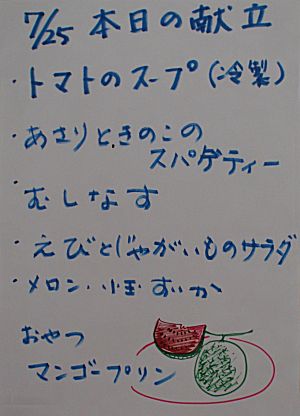 7/25 本日の献立
・トマトのスープ(冷製)
・あさりときのこの
スパゲティー
・むしなす
・えびとじゃがいものサラダ
・メロン・小玉すいか
おやつ
マンゴープリン